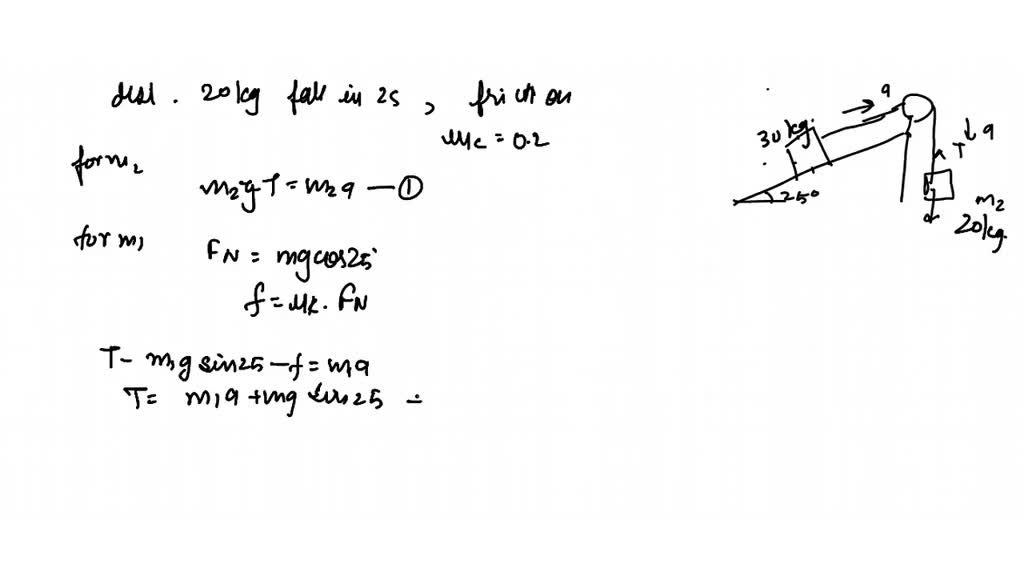 dist. 20 kg fall in 2s, friction
μk = 0.2
for m2
m2g T = m2a — ①
for m1
FN = mg cos25°
f = μk. FN
T - m1g sin25 - f = m1a
T = m1a + mg sin25 =
a
30 kg.
25°
T
a
m2
20 kg.